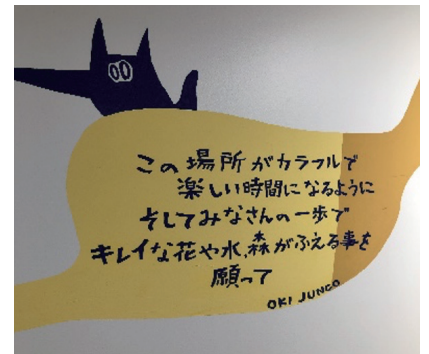 この場所がカラフルで
楽しい時間になるように
そしてみなさんの一歩で
キレイな花や水、森がふえる事を
願って
OKI JUNCO